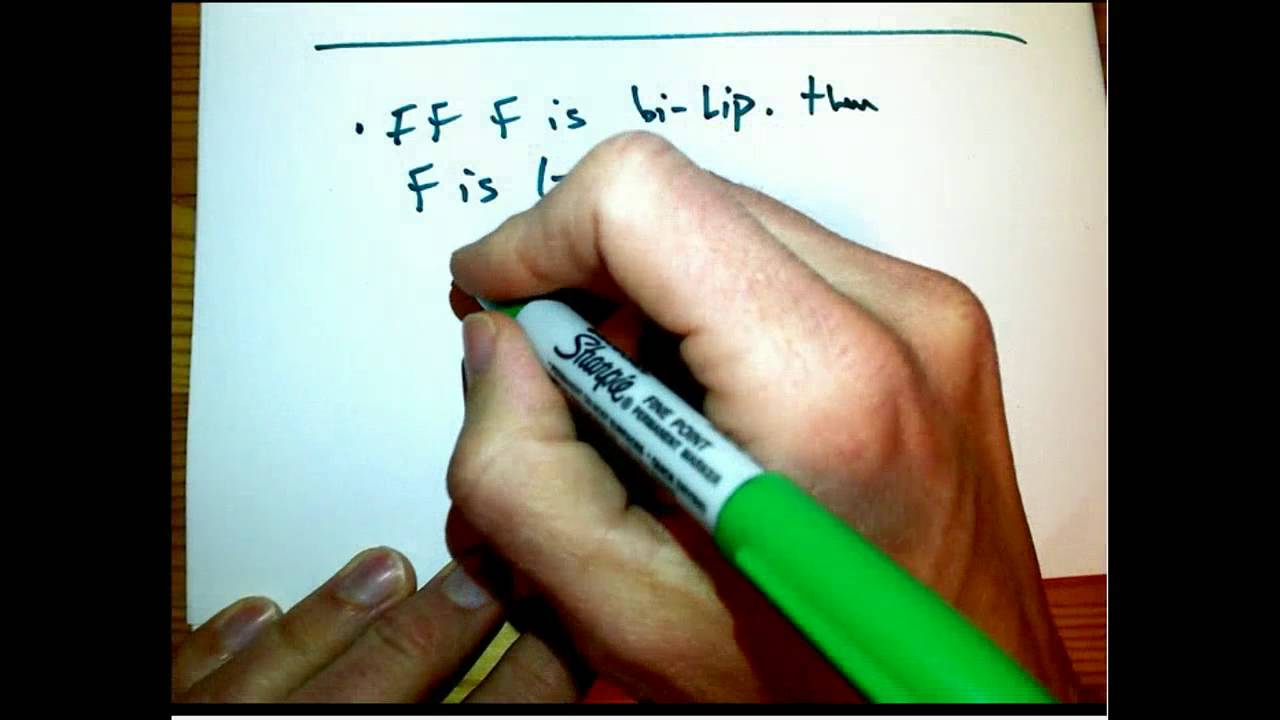 • IF F is bi-Lip. then
F is 1-
Sharpie®
FINE POINT
PERMANENT MARKER